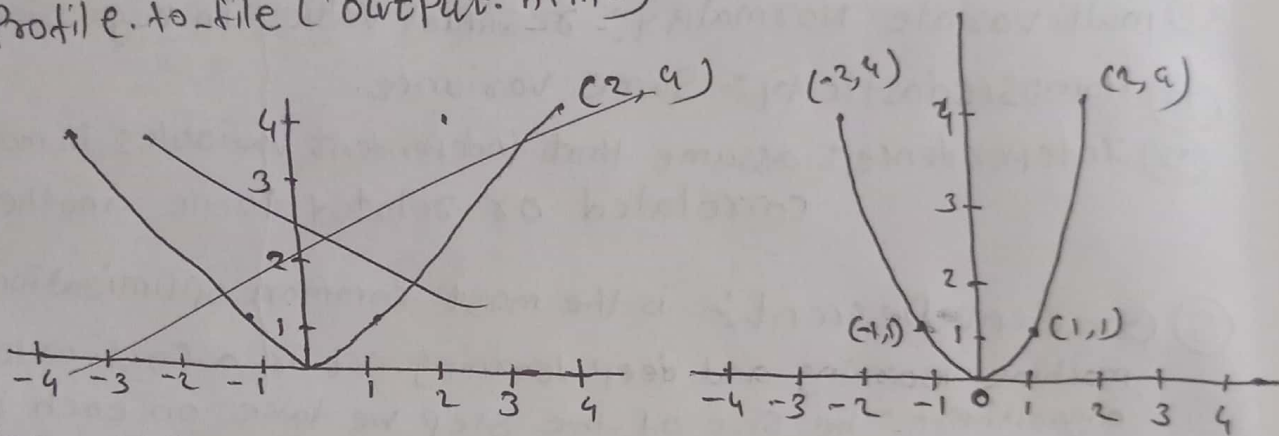 Profile.to_file("output.html")
(2, 4)
4
3
2
1
-4 -3 -2 -1 1 2 3 4
(-2,4) (2,4)
4
3
2
(-1,1) 1 (1,1)
-4 -3 -2 -1 0 1 2 3 4